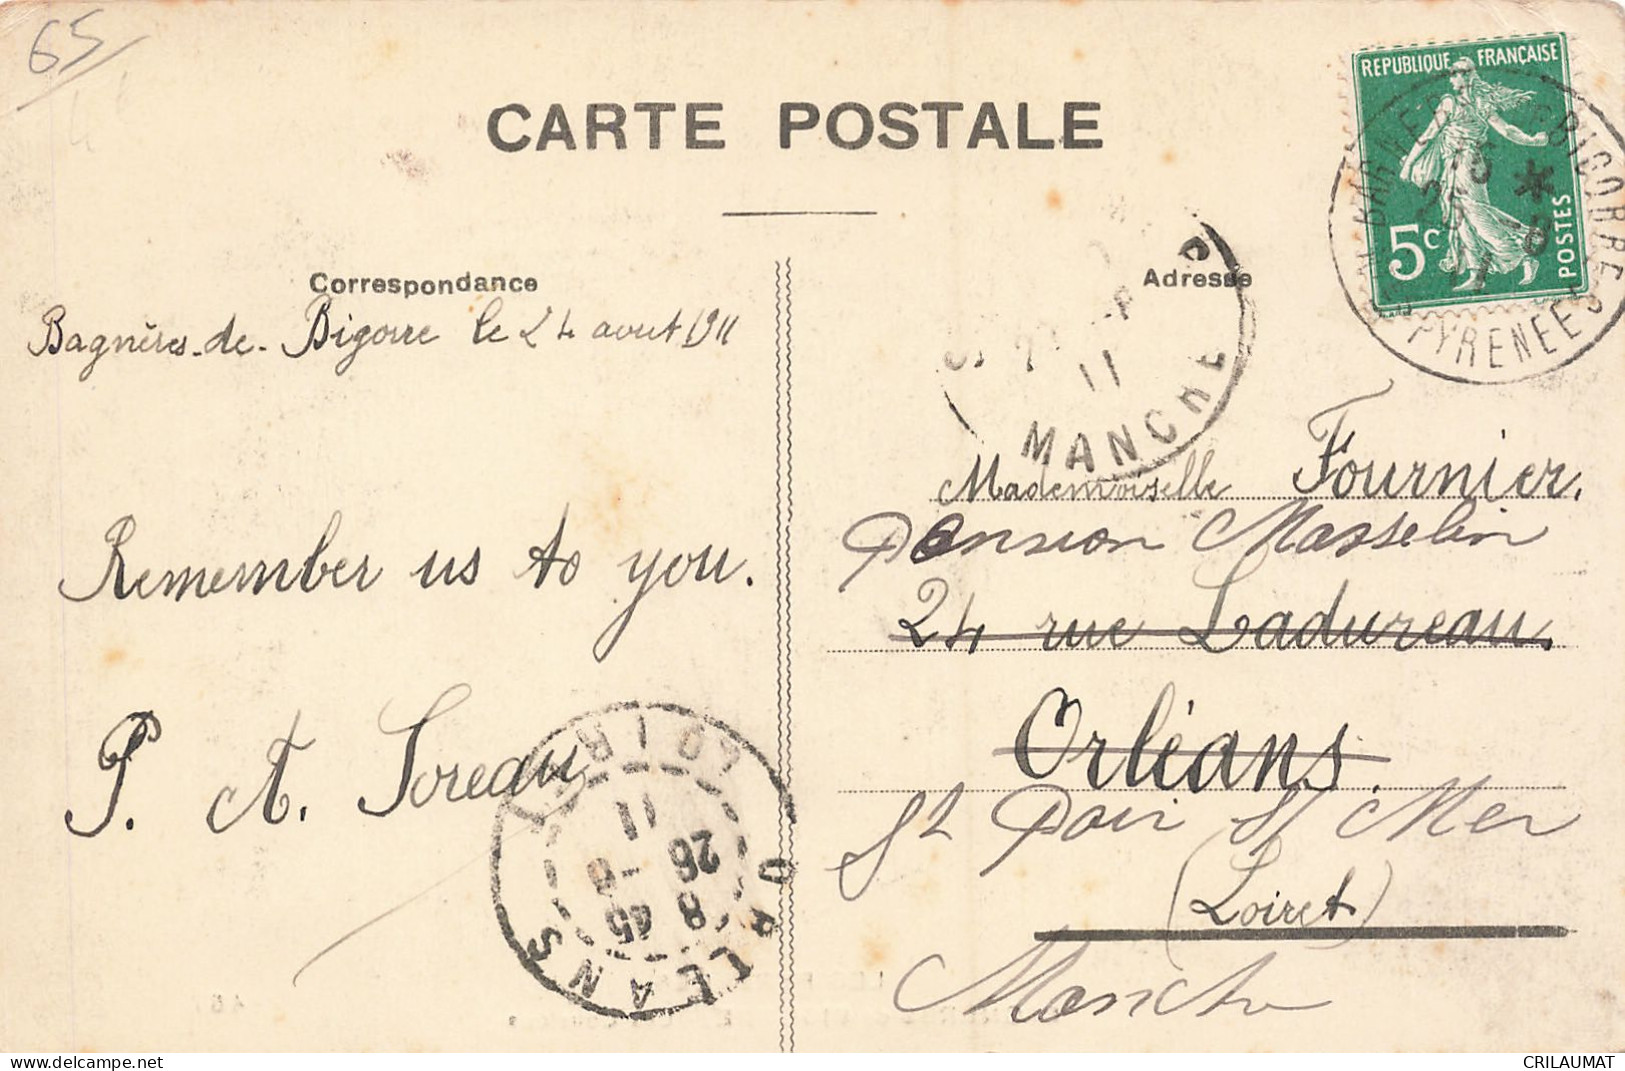 65
CARTE POSTALE
REPUBLIQUE FRANÇAISE
5c
POSTES
BAGNERES DE BIGORRE
PYRENEES
Correspondance
Adresse
Bagnères-de-Bigorre le 24 aout 1911
11
MANCHE
Mademoiselle Fournier,
Pension Masselin
24 rue Ladureau,
Remember us to you.
Orléans.
P. A. Soreau
St Pair S/ Mer
(Loiret)
Manche
ORLEANS
LOIRET
8 45
26 - 8
11
delcampe.net
CRILAUMAT